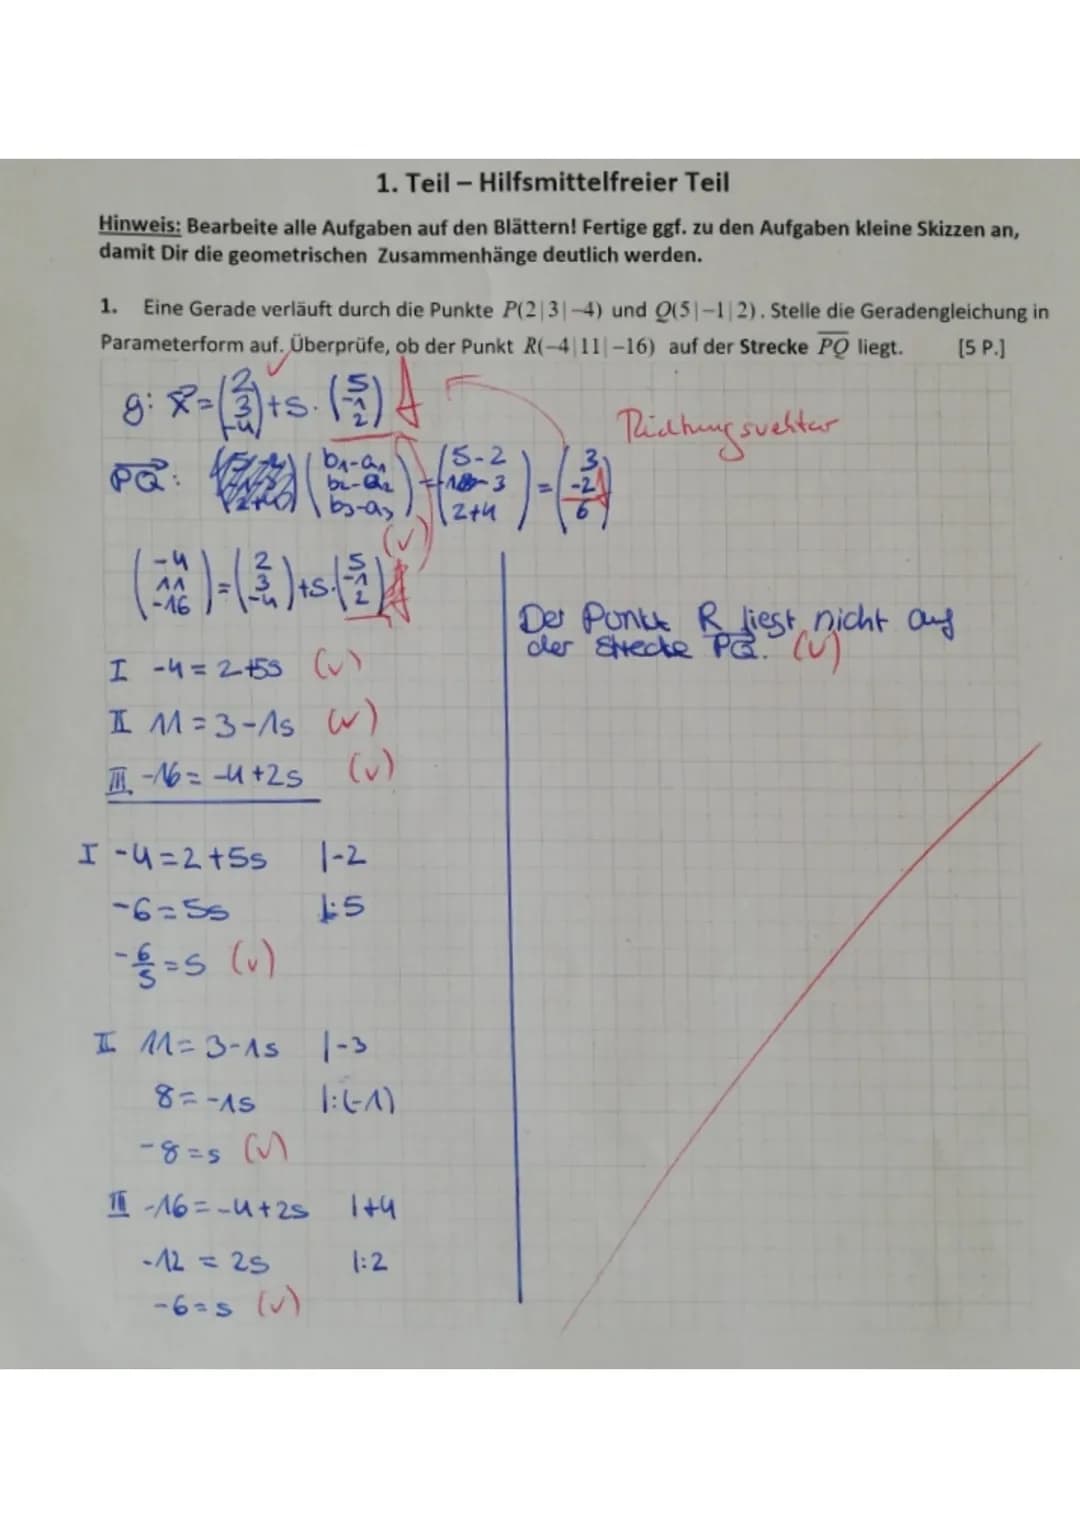 1. Teil – Hilfsmittelfreier Teil
Hinweis: Bearbeite alle Aufgaben auf den Blättern! Fertige ggf. zu den Aufgaben kleine Skizzen an,
damit Dir die geometrischen Zusammenhänge deutlich werden.
1. Eine Gerade verläuft durch die Punkte P(2|3|−4) und Q(5|−1|2). Stelle die Geradengleichung in
Parameterform auf. Überprüfe, ob der Punkt R(−4|11|−16) auf der Strecke PQ liegt. [5 P.]
✓
g: x⃗ = (2 3 -4) + s · (5 -1 2)
Richtungsvektor
PQ⃗: (b₁-a₁ b₂-a₂ b₃-a₃) = (5-2 -3 2+4) = (3 -2 6)
(✓)
(-4 11 -16) = (2 3 -4) + s · (5 -1 2)
I -4 = 2+5s (✓)
II 11 = 3-1s (✓)
III -16 = -4+2s (✓)
I -4 = 2+5s |-2
-6 = 5s |:5
-6/5 = s (✓)
II 11 = 3-1s |-3
8 = -1s |:(-1)
-8 = s (✓)
III -16 = -4+2s |+4
-12 = 2s |:2
-6 = s (✓)
Der Punkt R liegt nicht auf
der Strecke PQ. (✓)